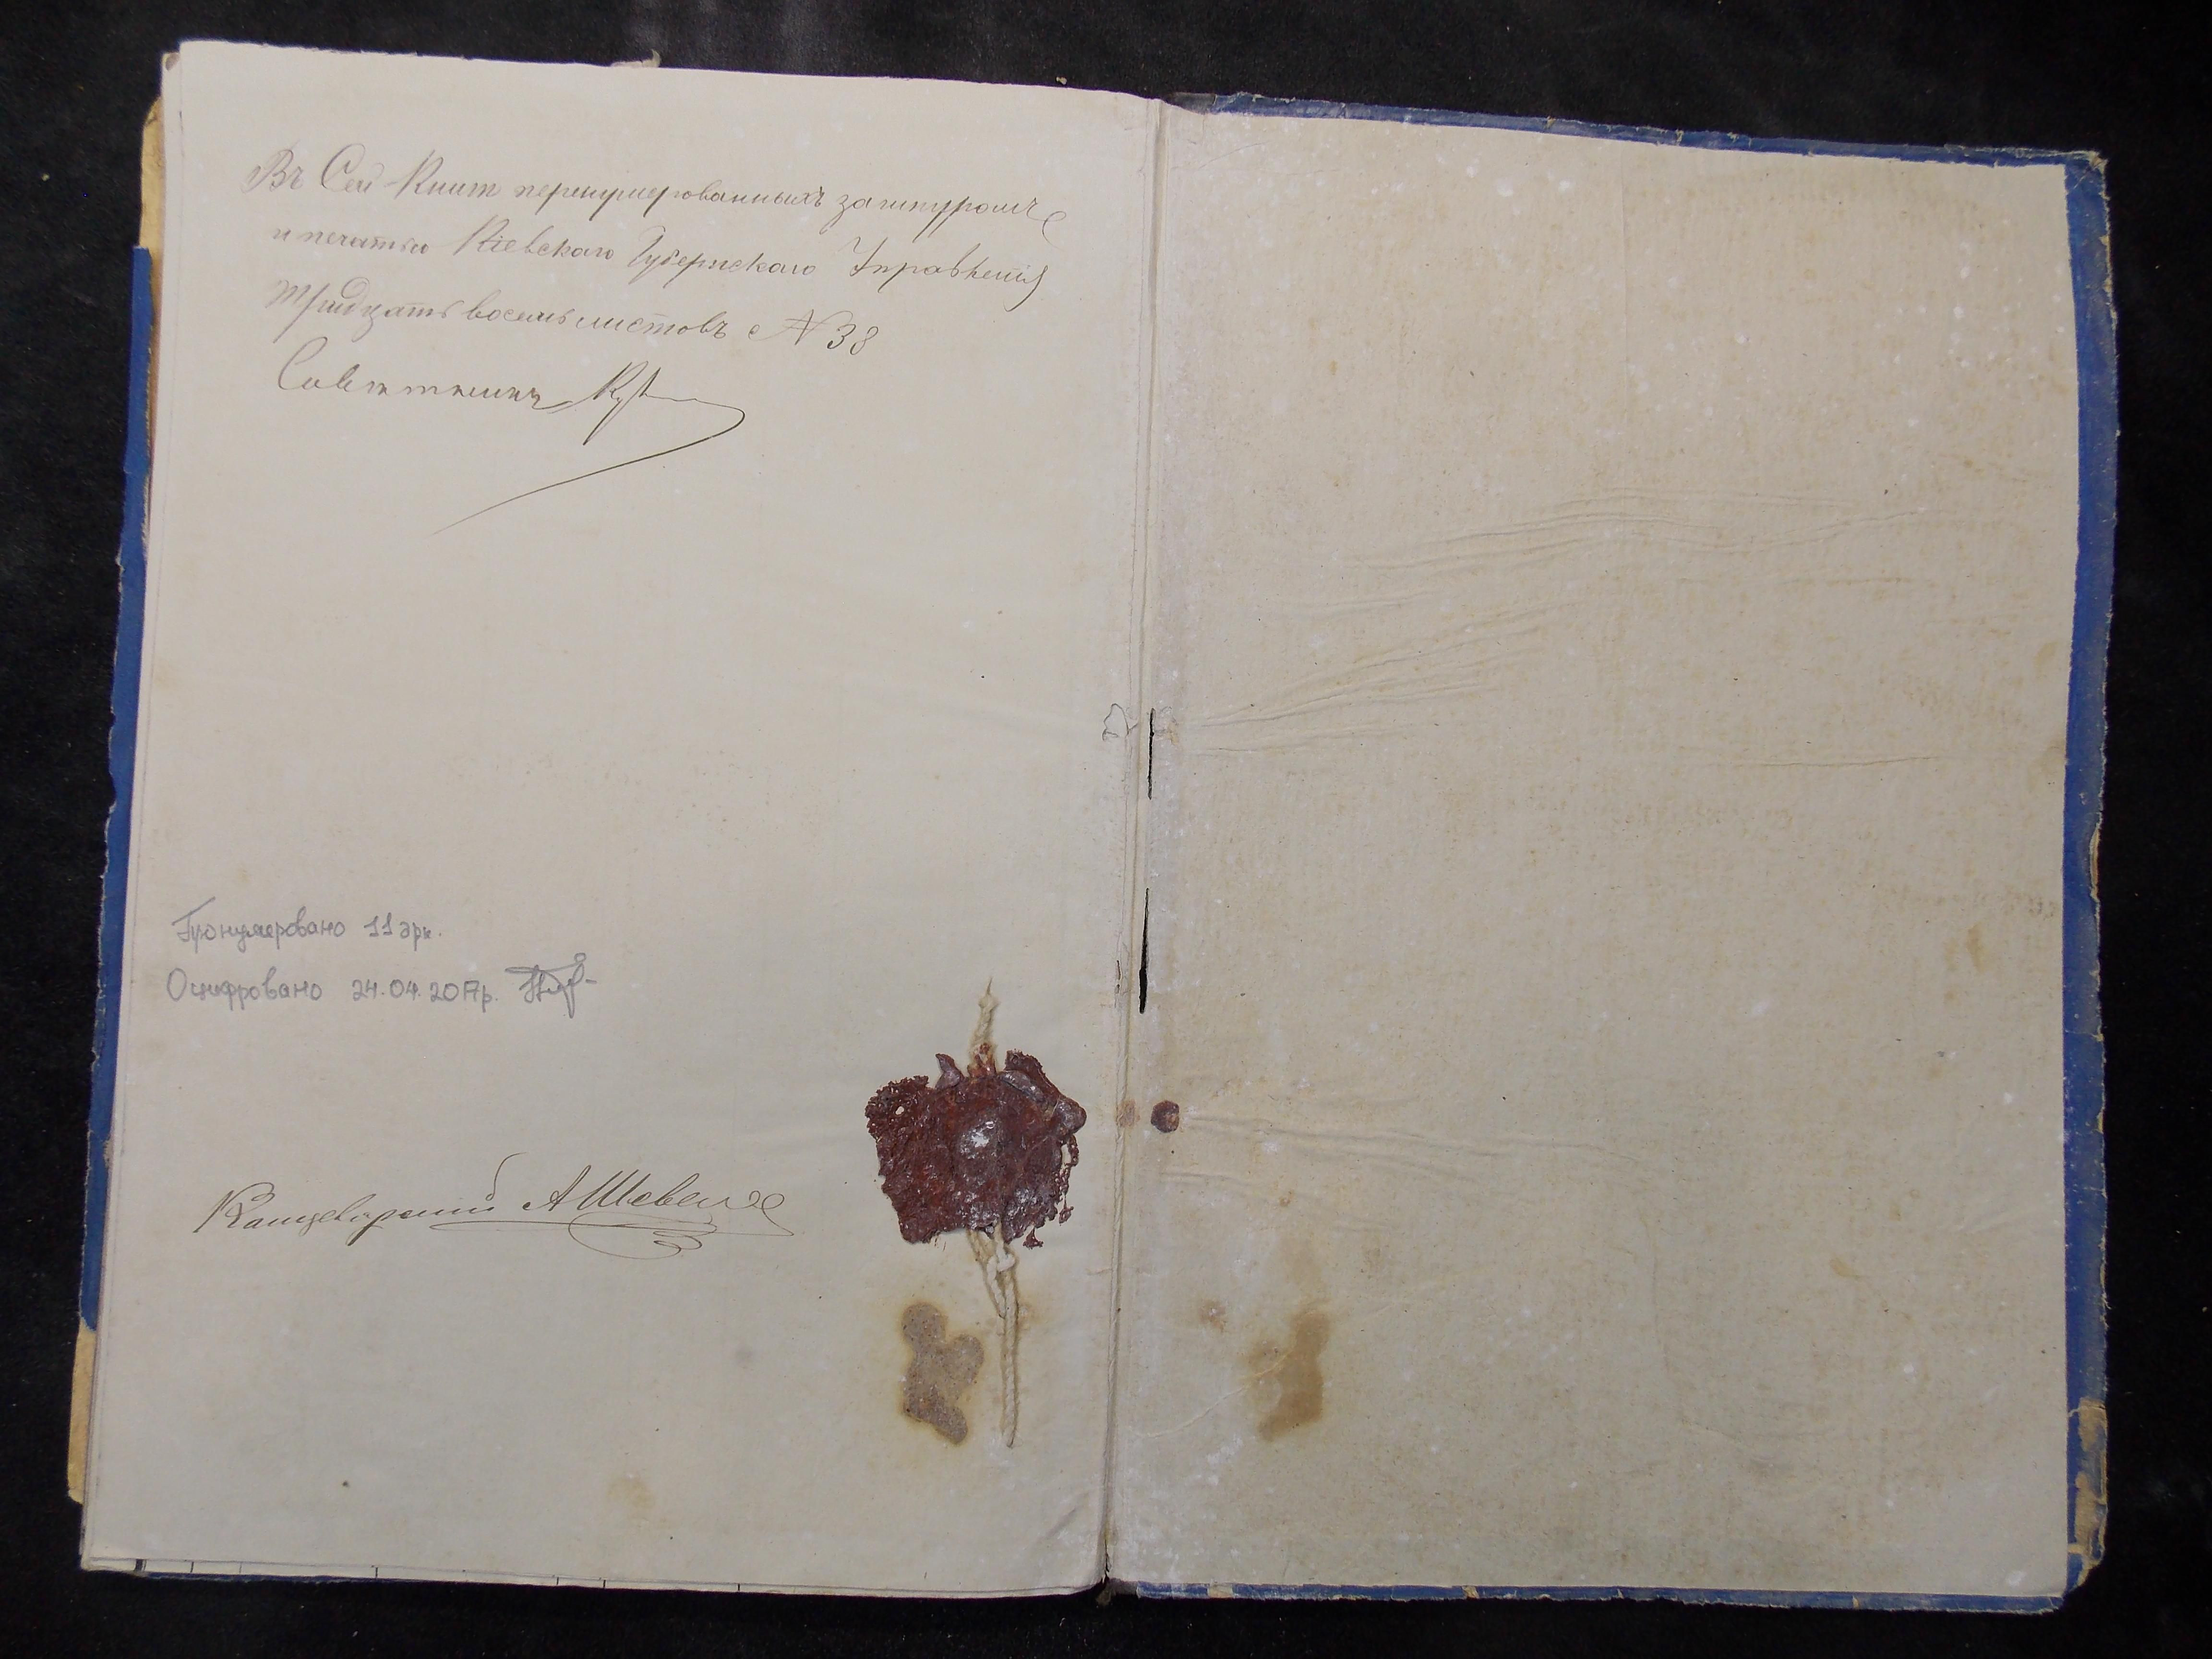 Въ Сей Книг перенумерованныхъ за шнуромъ
и печатью Кіевскаго Губернскаго Управленія
тридцать восемь листовъ с № 38
Советникъ
Пронумеровано 11 арк.
Оцифровано 24.04.2017р.
Канцелярский А Шевел